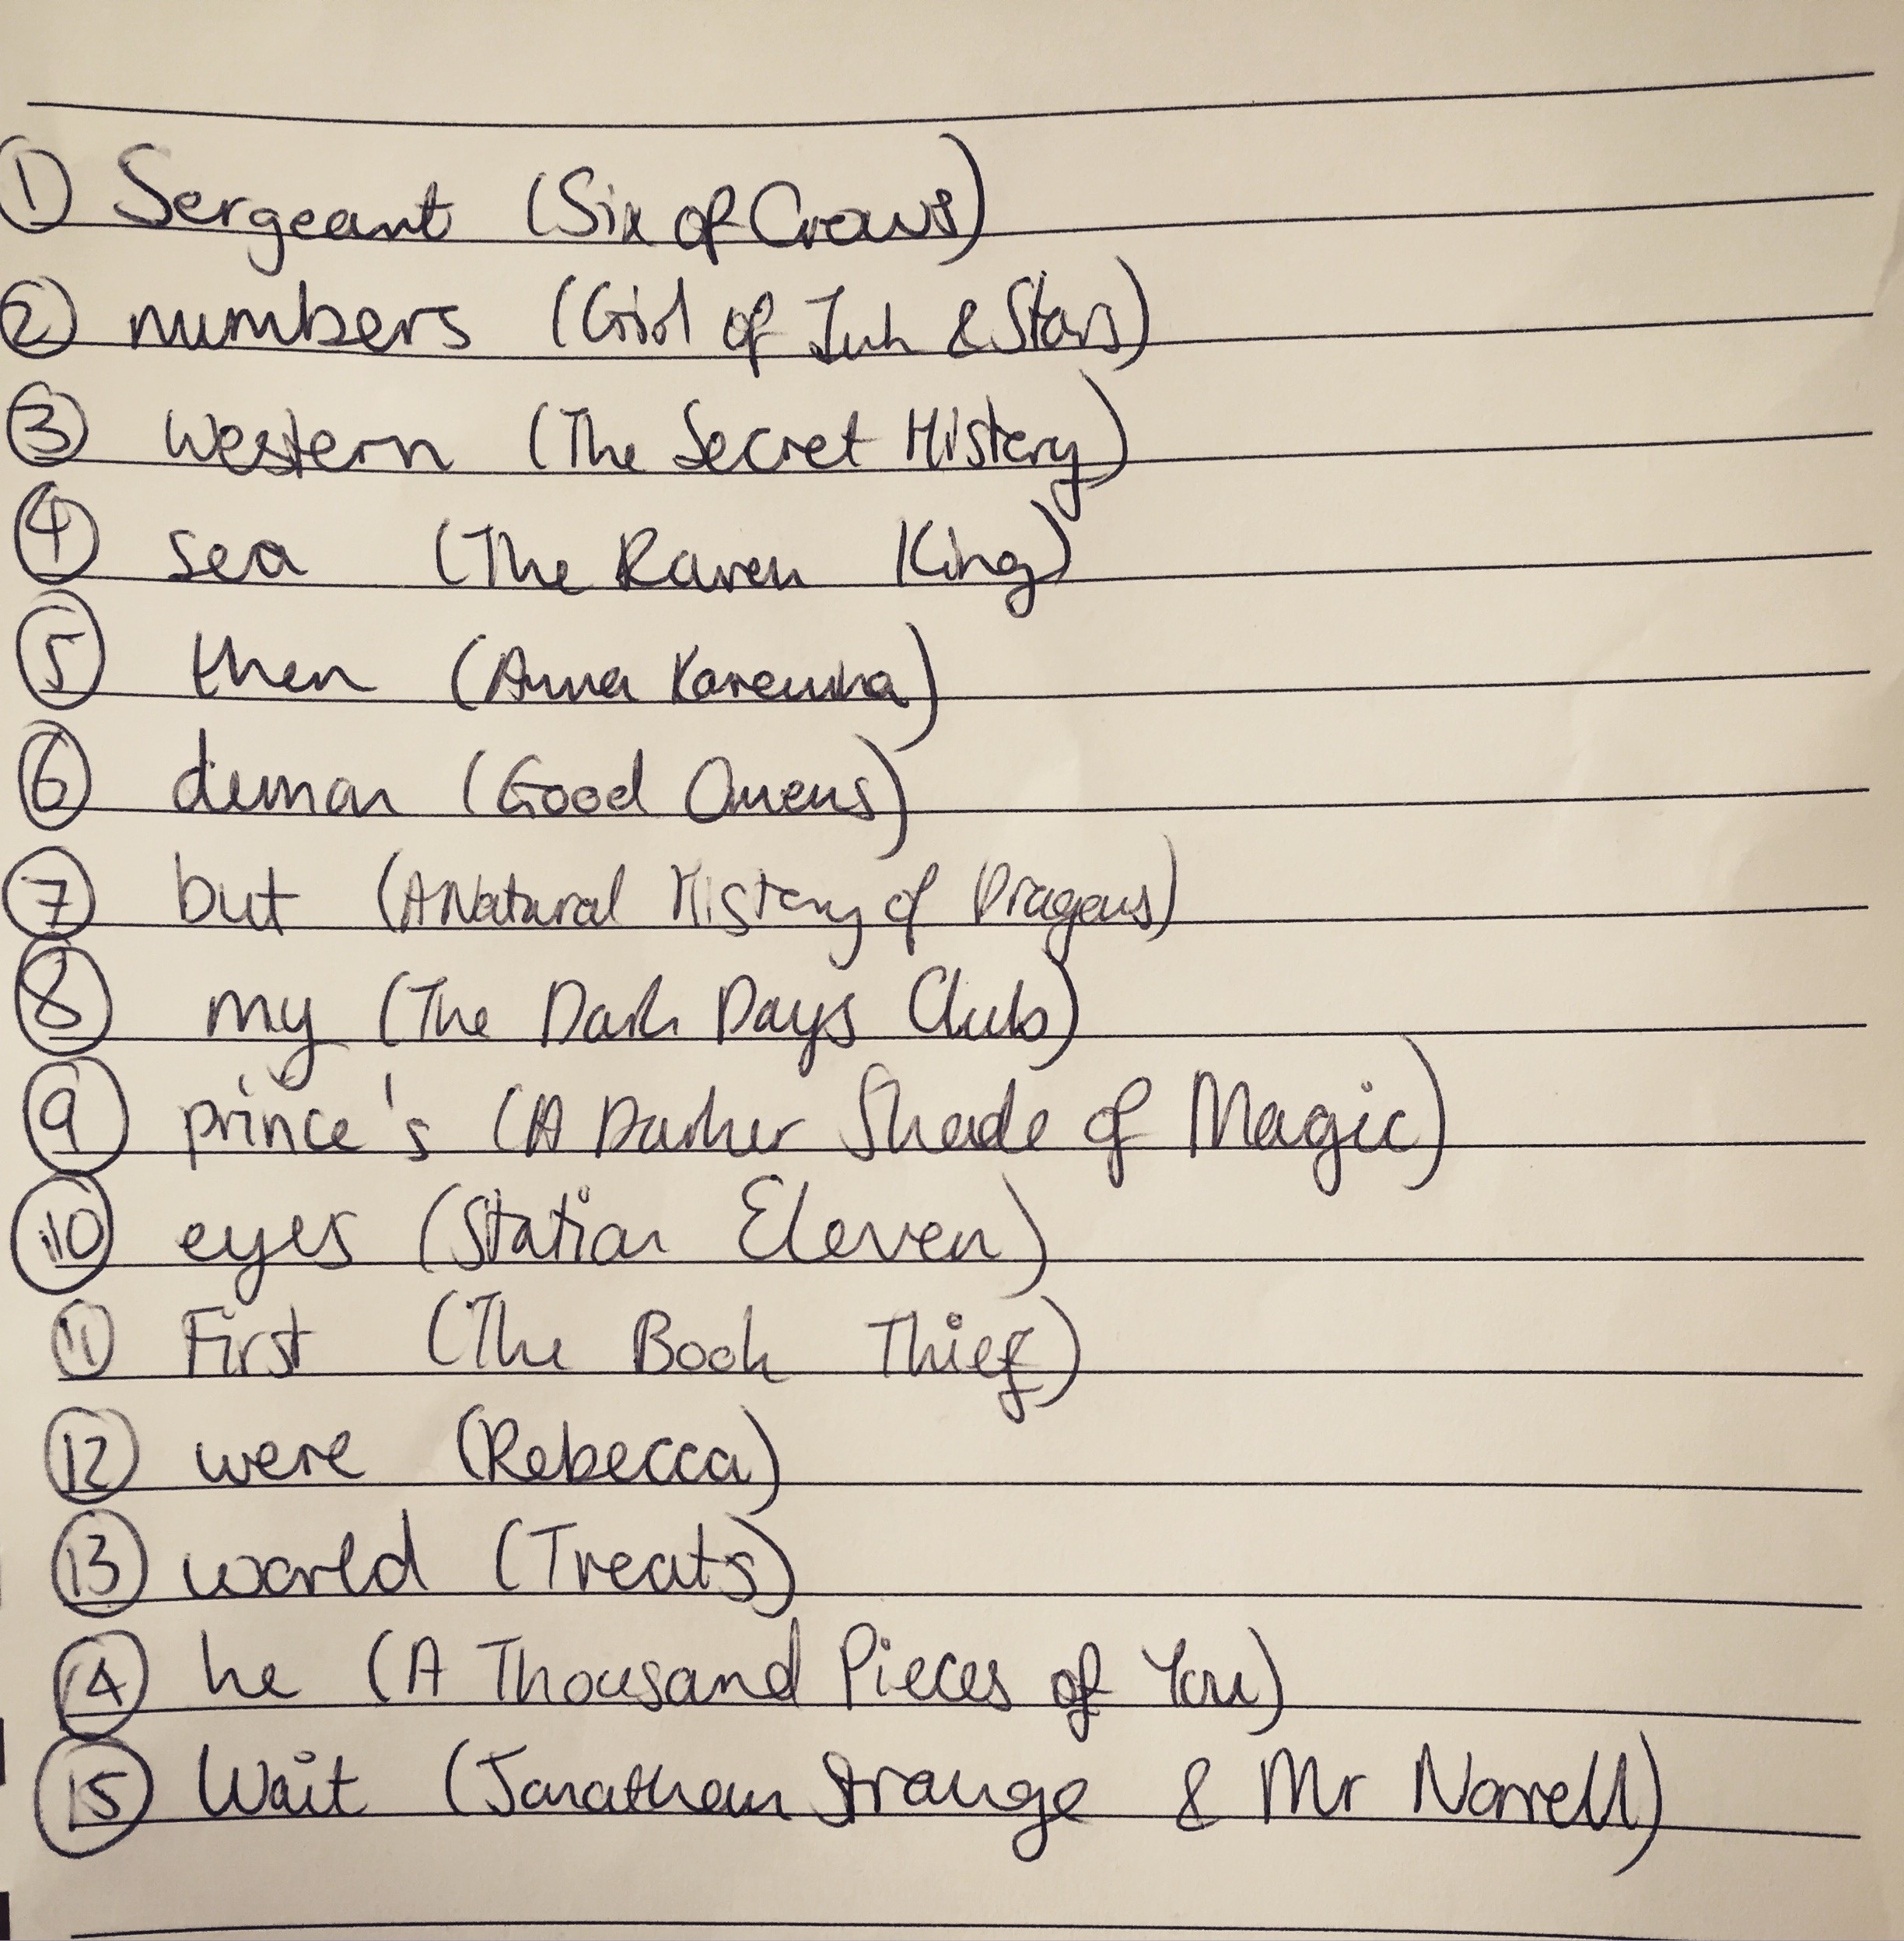 1 Sergeant (Six of Crows)
2 numbers (Girl of Ink & Stars)
3 western (The Secret History)
4 sea (The Raven King)
5 then (Anna Karenina)
6 demon (Good Omens)
7 but (A Natural History of Dragons)
8 my (The Dark Days Club)
9 prince's (A Darker Shade of Magic)
10 eyes (Station Eleven)
11 First (The Book Thief)
12 were (Rebecca)
13 world (Treats)
14 he (A Thousand Pieces of You)
15 Wait (Jonathan Strange & Mr Norrell)